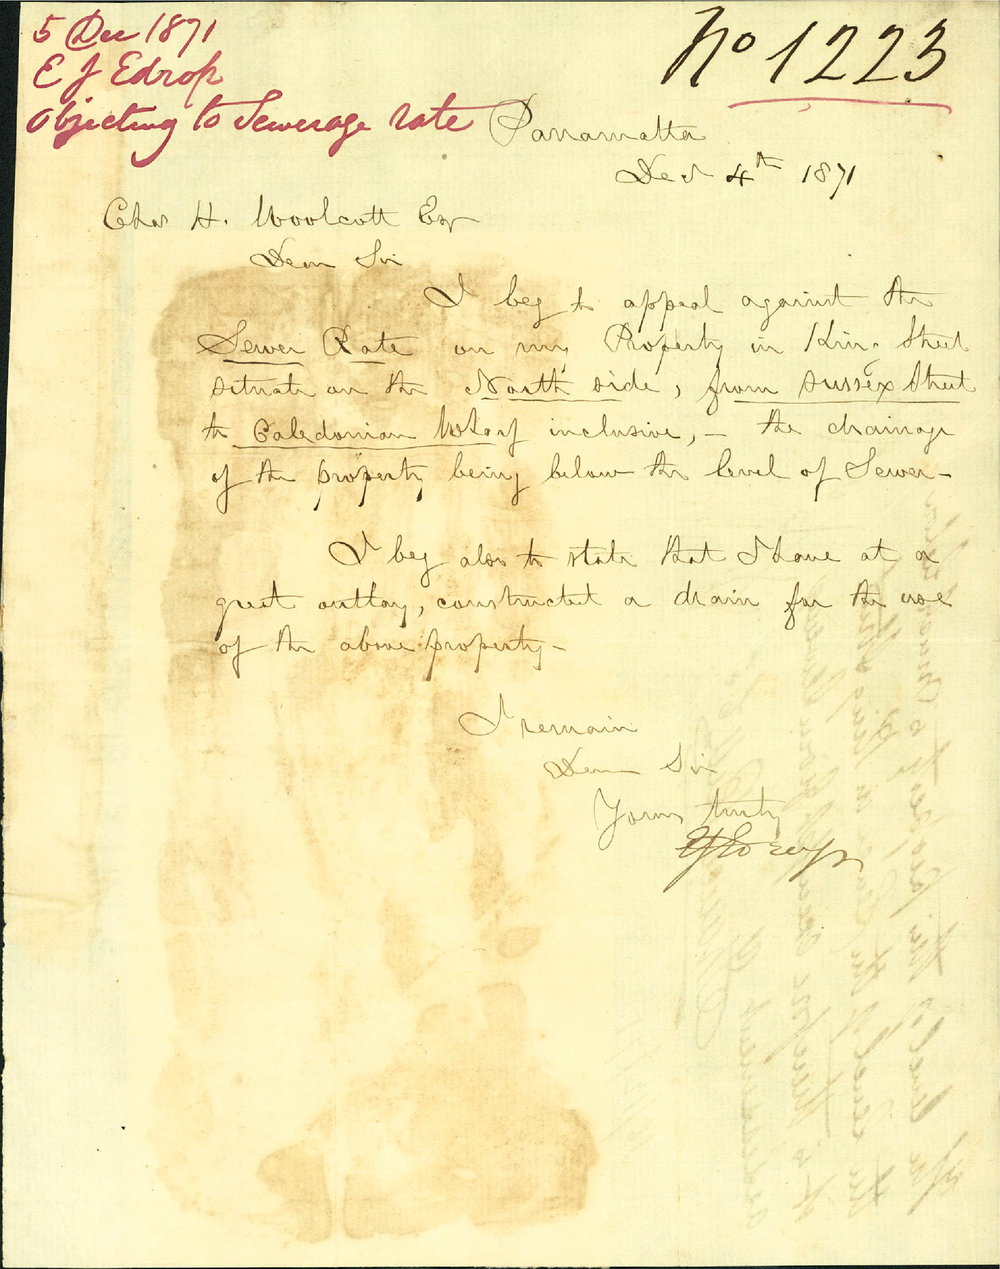 5 Dec 1871
E J Edrop
Objecting to Sewerage rate
No 1223
Parramatta
Dec 4th 1871
Chas H. Woolcott Esq
Dear Sir
I beg to appeal against the
Sewer Rate on my Property in King Street
situate on the North side, from Sussex Street
to Caledonian Wharf inclusive, – the drainage
of the property being below the level of Sewer –
I beg also to state that I have at a
great outlay, constructed a drain for the use
of the above property –
I remain
Dear Sir
Yours truly
E J Edrop